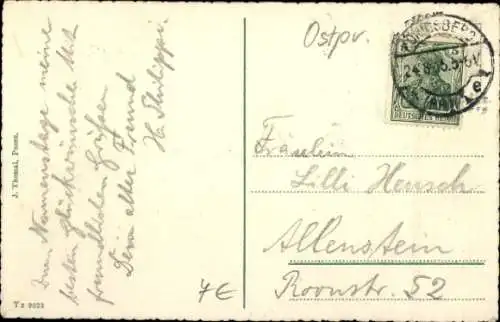 Zum Namenstage meine
besten Glückwünsche Mit
freundlichen Grüßen
Dein alter Freund
H. Philippi.
J. Themal, Posen.
Tz 9023
7€
Ostpr.
KÖNIGSBERG
DEUTSCHES REICH
Fräulein
Lilli Hensch
Allenstein
Roonstr. 52